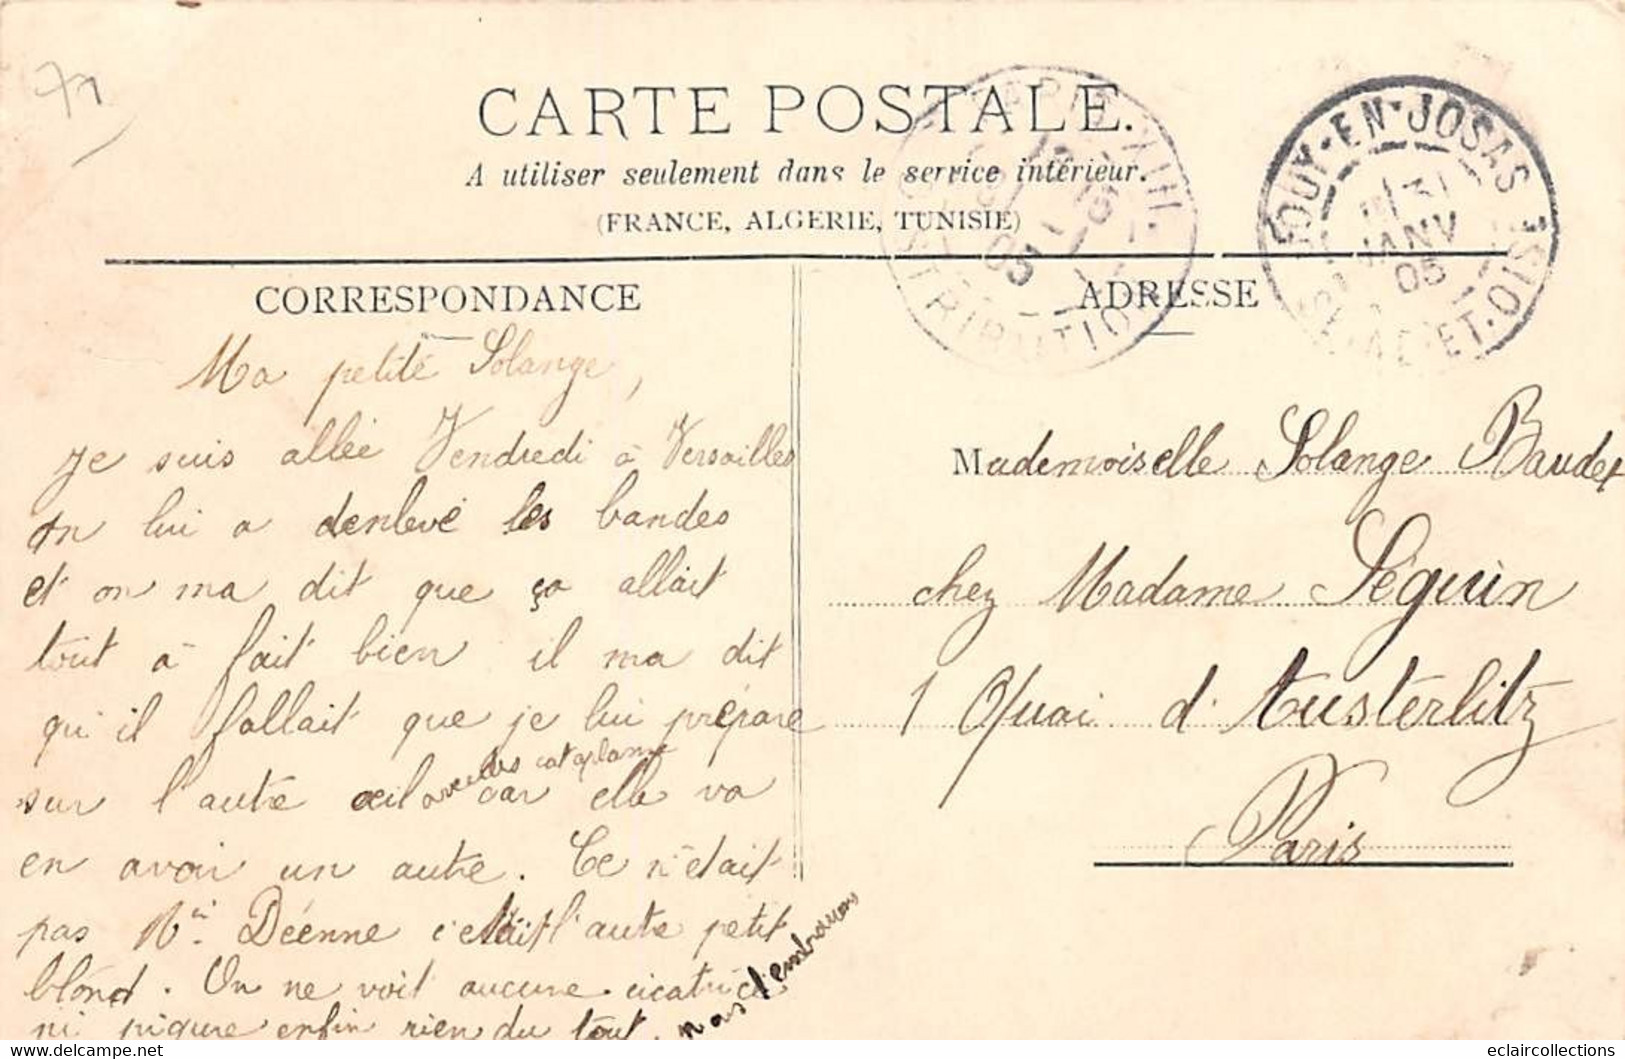 71
CARTE POSTALE.
A utiliser seulement dans le service intérieur.
(FRANCE, ALGERIE, TUNISIE)
PARIS XIII
DISTRIBUTION
05
JOUY-EN-JOSAS
31
JANV
05
SEINE-ET-OISE
CORRESPONDANCE
ADRESSE
Ma petite Solange,
Je suis allée Vendredi à Versailles
on lui a denlevé les bandes
et on ma dit que ça allait
tout à fait bien il ma dit
qu'il fallait que je lui prépare
sur l'autre œil avec des cataplasme car elle va
en avoir un autre. Ce n'était
pas Mr. Déenne c'était l'autre petit
blond. On ne voit aucune cicatrice
ni piqure enfin rien du tout.
nous t'embrassons
Mademoiselle Solange Baudet
chez Madame Séguin
1 Quai d'Austerlitz
Paris
www.delcampe.net
eclaircollections